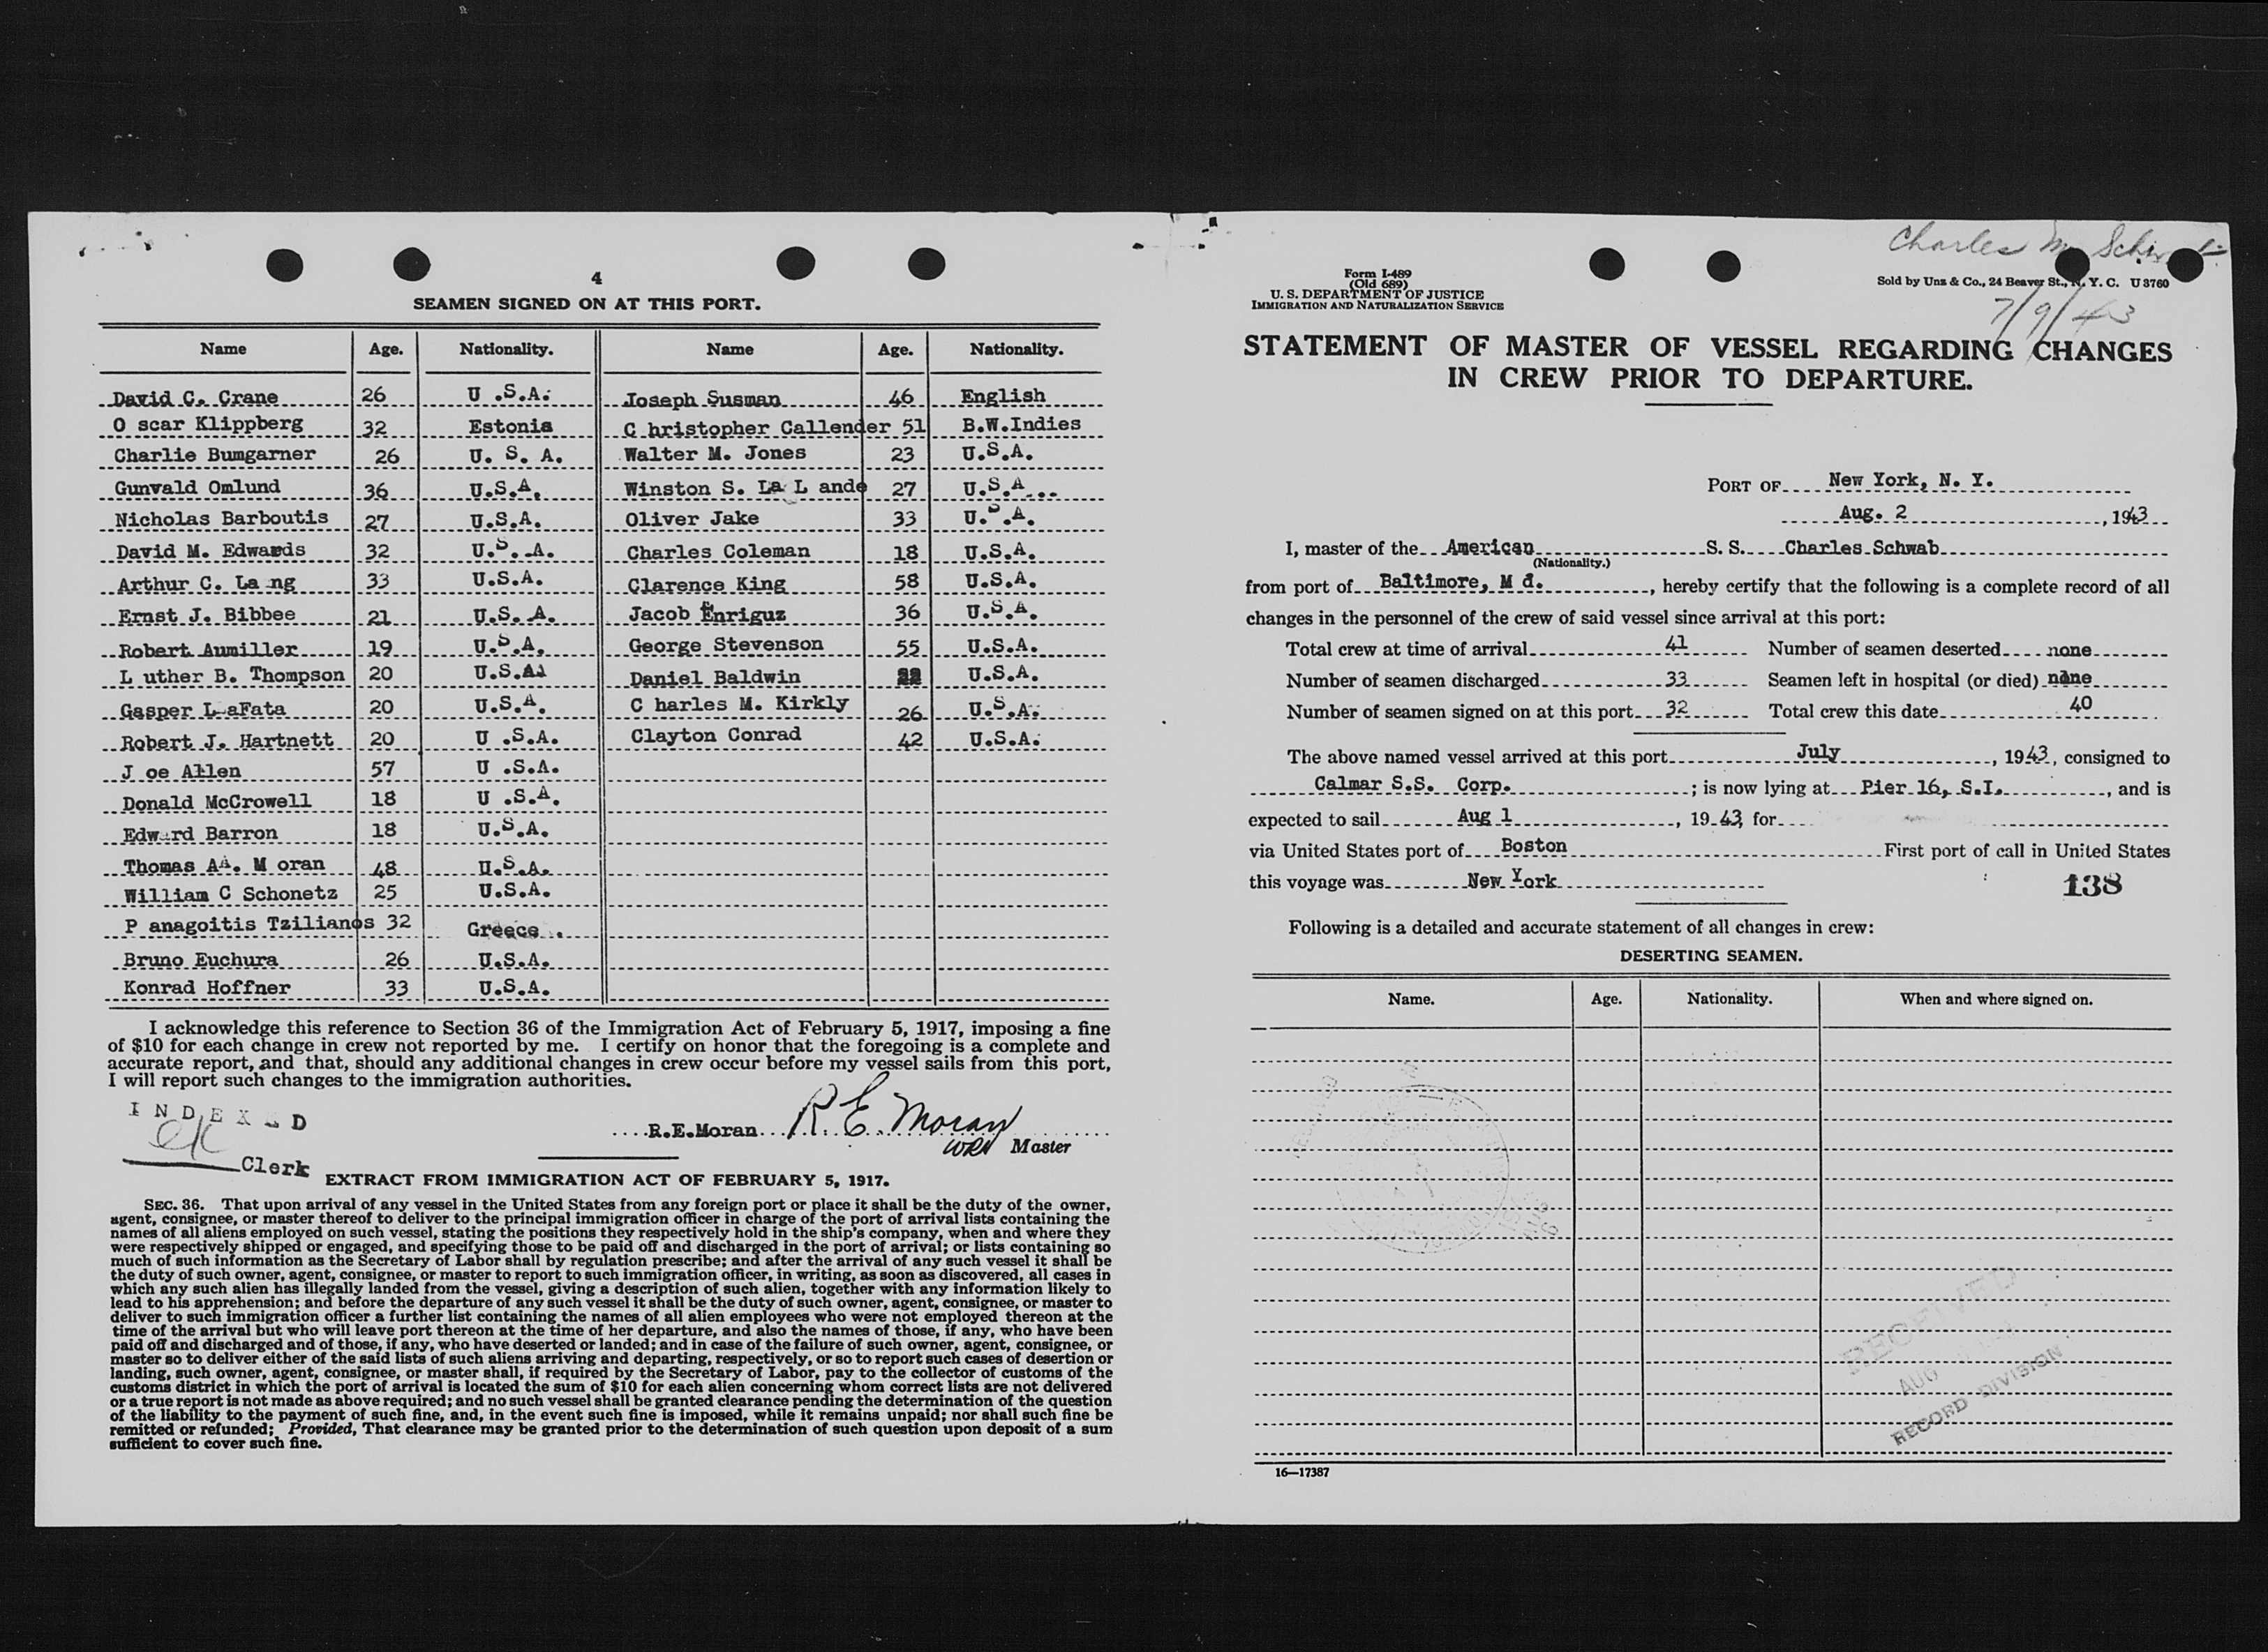 4
SEAMEN SIGNED ON AT THIS PORT.
Name Age. Nationality. Name Age. Nationality.
David C. Crane 26 U .S.A. Joseph Susman 46 English
O scar Klippberg 32 Estonia C hristopher Callender 51 B.W.Indies
Charlie Bumgarner 26 U. S. A. Walter M. Jones 23 U.S.A.
Gunvald Omlund 36 U.S.A. Winston S. La L ande 27 U.S.A...
Nicholas Barboutis 27 U.S.A. Oliver Jake 33 U.S.A.
David M. Edwards 32 U.S. A. Charles Coleman 18 U.S.A.
Arthur C. La ng 33 U.S.A. Clarence King 58 U.S.A.
Ernst J. Bibbee 21 U.S. A. Jacob Enriguz 36 U.S.A.
Robert Aumiller 19 U.S.A. George Stevenson 55 U.S.A.
L uther B. Thompson 20 U.S.A Daniel Baldwin U.S.A.
Gasper LaFata 20 U.S.A. C harles M. Kirkly 26 U.S.A.
Robert J. Hartnett 20 U .S.A. Clayton Conrad 42 U.S.A.
J oe Allen 57 U .S.A.
Donald McCrowell 18 U .S.A.
Edward Barron 18 U.S.A.
Thomas AA. M oran 48 U.S.A.
William C Schonetz 25 U.S.A.
P anagoitis Tzilianos 32 Greece .
Bruno Euchura 26 U.S.A.
Konrad Hoffner 33 U.S.A.
I acknowledge this reference to Section 36 of the Immigration Act of February 5, 1917, imposing a fine
of $10 for each change in crew not reported by me. I certify on honor that the foregoing is a complete and
accurate report, and that, should any additional changes in crew occur before my vessel sails from this port,
I will report such changes to the immigration authorities.
INDEXED
Clerk
R.E.Moran R. E. Moran
Master
EXTRACT FROM IMMIGRATION ACT OF FEBRUARY 5, 1917.
SEC. 36. That upon arrival of any vessel in the United States from any foreign port or place it shall be the duty of the owner,
agent, consignee, or master thereof to deliver to the principal immigration officer in charge of the port of arrival lists containing the
names of all aliens employed on such vessel, stating the positions they respectively hold in the ship's company, when and where they
were respectively shipped or engaged, and specifying those to be paid off and discharged in the port of arrival; or lists containing so
much of such information as the Secretary of Labor shall by regulation prescribe; and after the arrival of any such vessel it shall be
the duty of such owner, agent, consignee, or master to report to such immigration officer, in writing, as soon as discovered, all cases in
which any such alien has illegally landed from the vessel, giving a description of such alien, together with any information likely to
lead to his apprehension; and before the departure of any such vessel it shall be the duty of such owner, agent, consignee, or master to
deliver to such immigration officer a further list containing the names of all alien employees who were not employed thereon at the
time of the arrival but who will leave port thereon at the time of her departure, and also the names of those, if any, who have been
paid off and discharged and of those, if any, who have deserted or landed; and in case of the failure of such owner, agent, consignee, or
master so to deliver either of the said lists of such aliens arriving and departing, respectively, or so to report such cases of desertion or
landing, such owner, agent, consignee, or master shall, if required by the Secretary of Labor, pay to the collector of customs of the
customs district in which the port of arrival is located the sum of $10 for each alien concerning whom correct lists are not delivered
or a true report is not made as above required; and no such vessel shall be granted clearance pending the determination of the question
of the liability to the payment of such fine, and, in the event such fine is imposed, while it remains unpaid; nor shall such fine be
remitted or refunded; Provided, That clearance may be granted prior to the determination of such question upon deposit of a sum
sufficient to cover such fine.
Charles M
Form I-489
(Old 689)
U. S. DEPARTMENT OF JUSTICE
IMMIGRATION AND NATURALIZATION SERVICE
Sold by Unz & Co., 24 Beaver St., N. Y. C. U 3760
7/9/43
STATEMENT OF MASTER OF VESSEL REGARDING CHANGES
IN CREW PRIOR TO DEPARTURE.
PORT OF New York, N. Y.
Aug. 2, 1943
I, master of the American S. S. Charles Schwab
(Nationality.)
from port of Baltimore, M d., hereby certify that the following is a complete record of all
changes in the personnel of the crew of said vessel since arrival at this port:
Total crew at time of arrival 41 Number of seamen deserted none
Number of seamen discharged 33 Seamen left in hospital (or died) none
Number of seamen signed on at this port 32 Total crew this date 40
The above named vessel arrived at this port July, 1943, consigned to
Calmar S.S. Corp.; is now lying at Pier 16, S.I., and is
expected to sail Aug 1, 1943, for
via United States port of Boston First port of call in United States
this voyage was New York 138
Following is a detailed and accurate statement of all changes in crew:
DESERTING SEAMEN.
Name. Age. Nationality. When and where signed on.
RECEIVED
AUG
RECORD DIVISION
16—17387